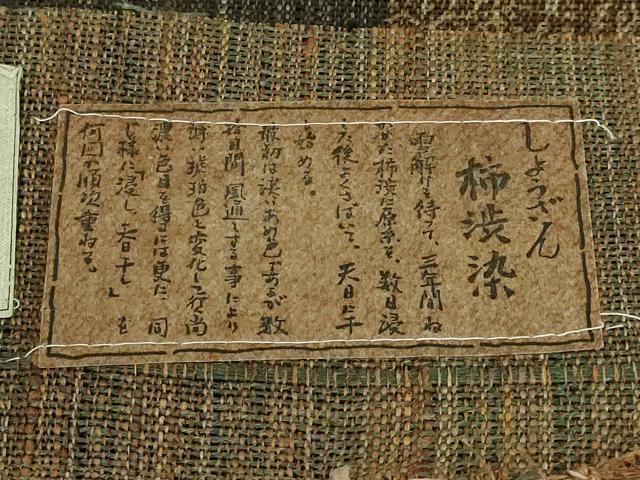 しょうざん
柿渋染
雪解けを待って、三年間ね
かせた柿渋に原糸を、数日浸
え後よくさばいて、天日に干
し始める。
最初は淡いあめ色であるが数
拾日間風通しする事により
琥珀色と変化して行く尚
濃い色目を得るには更に同
じ様に「浸し、春日干し」を
何回か順次重ねる。